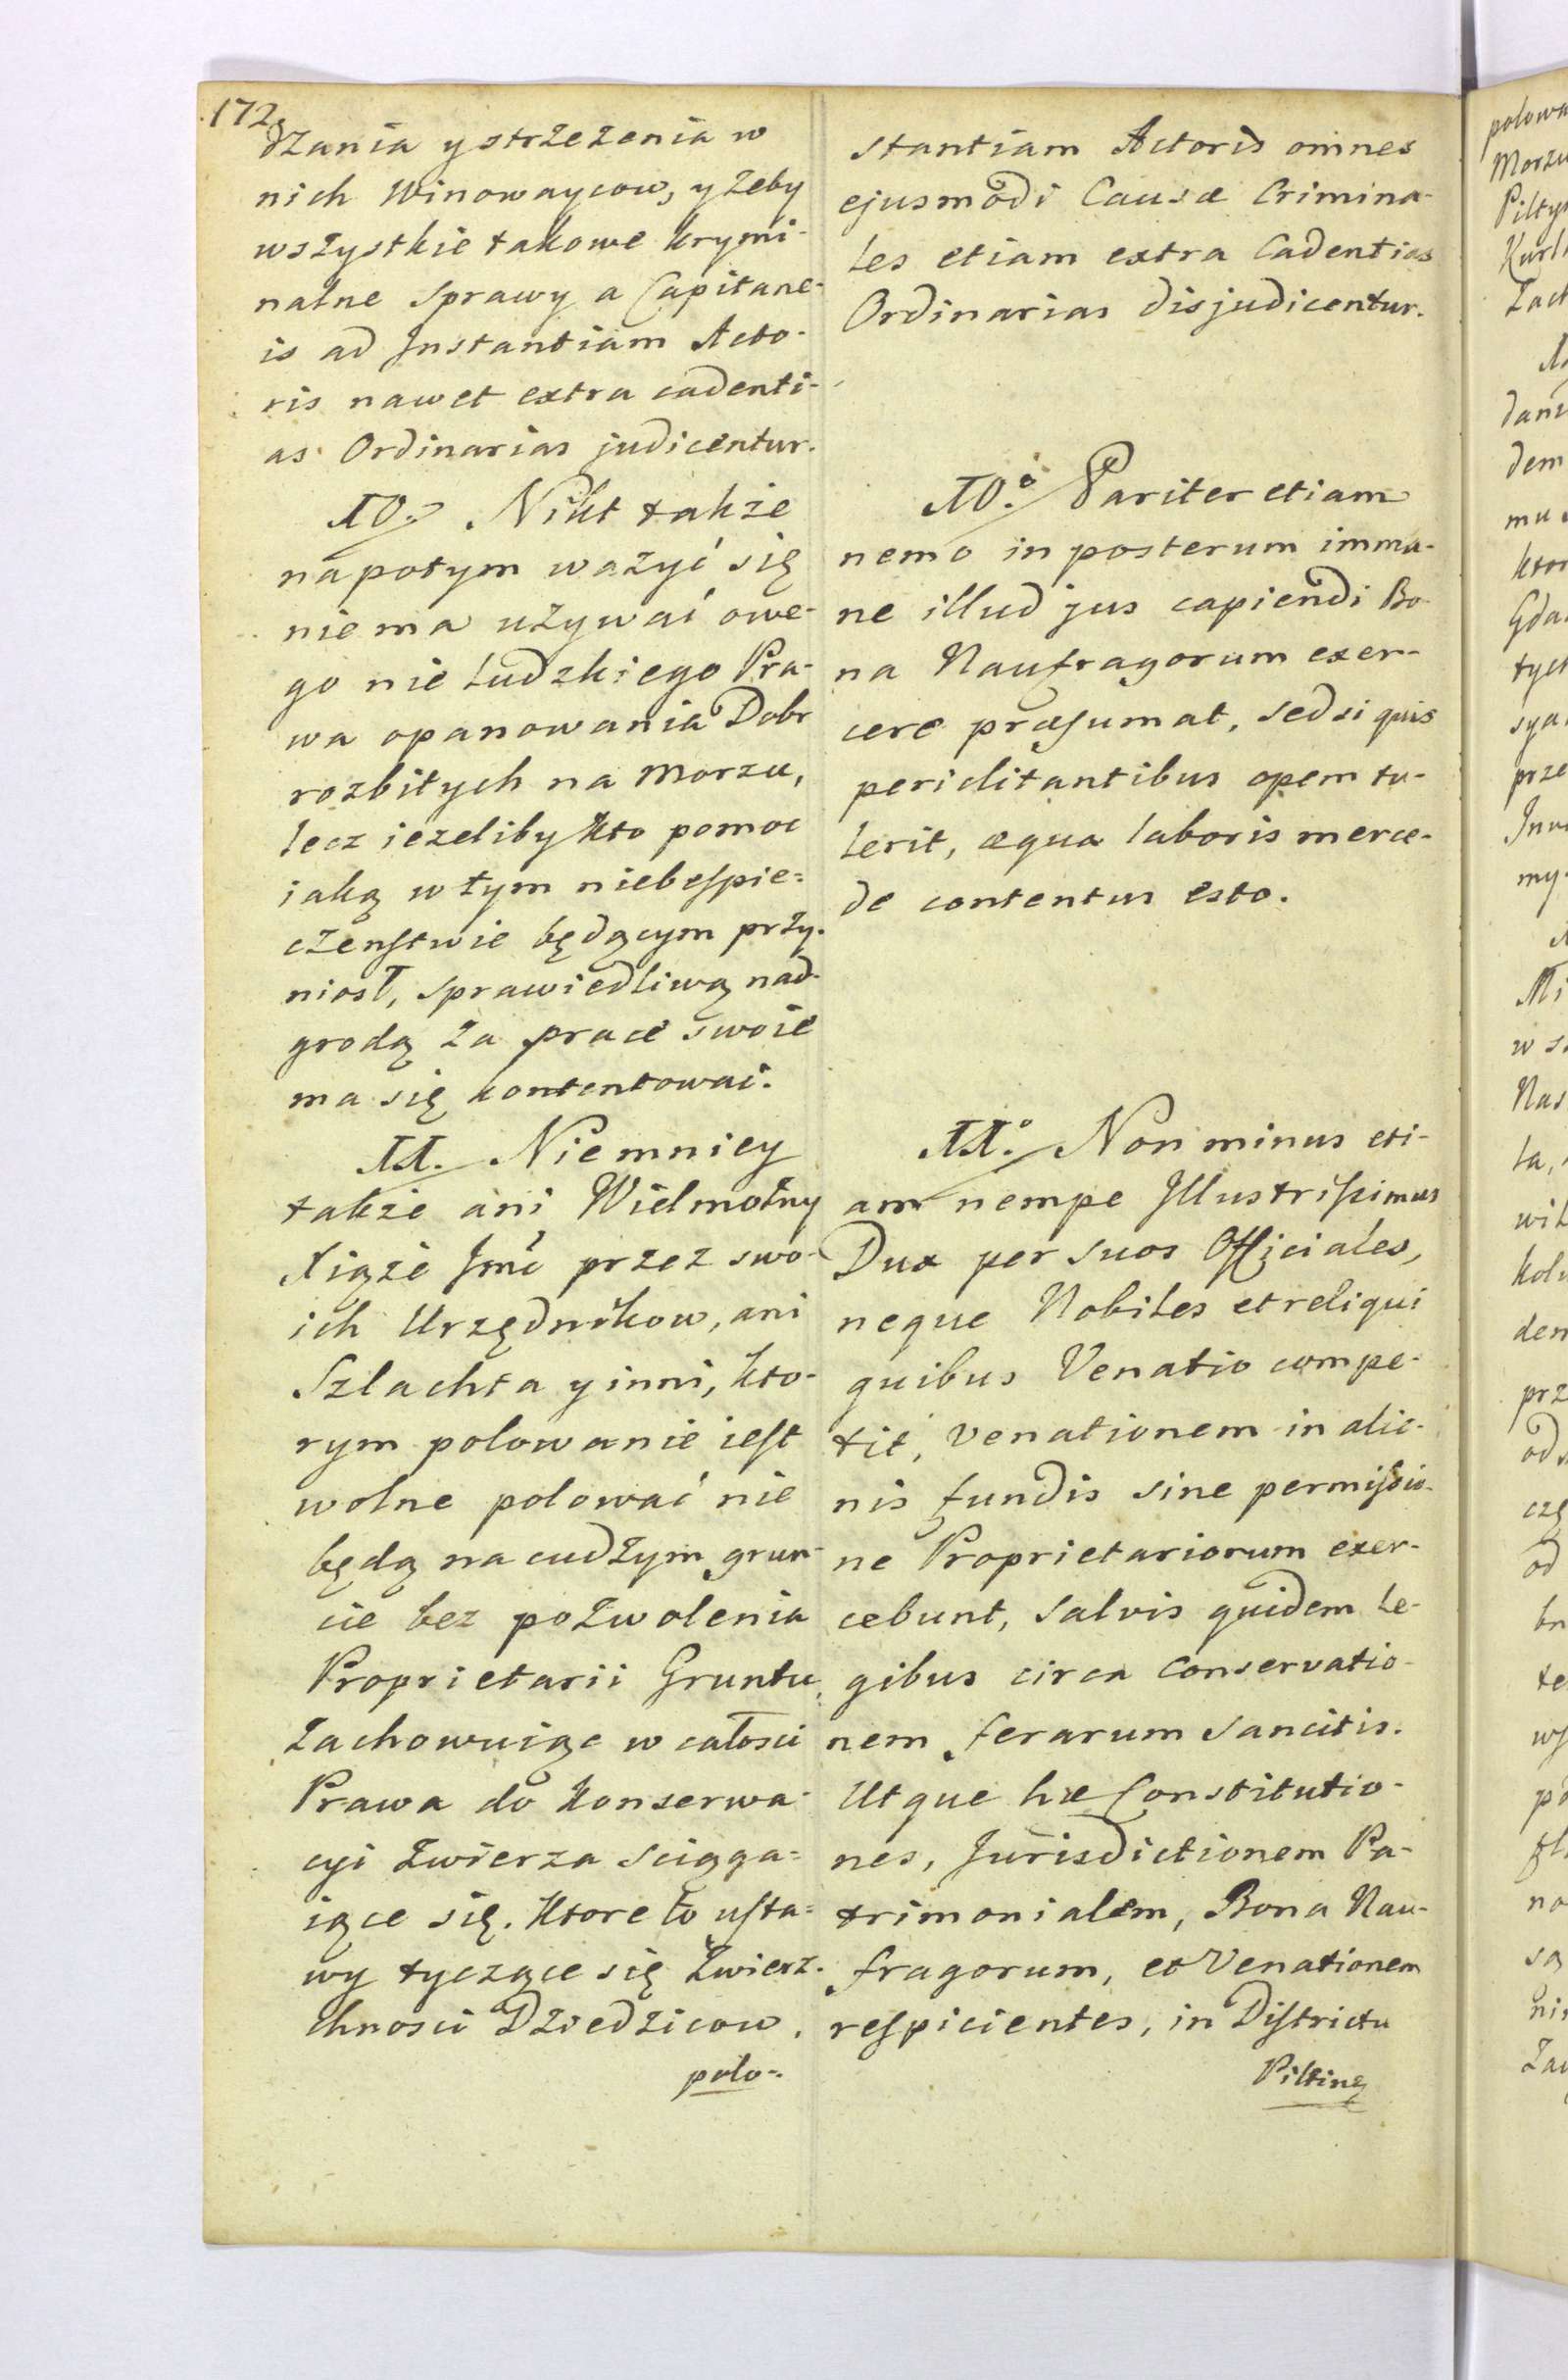 172
dzania y strzeżenia w
nich Winowaycow, y żeby
wszystkie takowe krymi-
nalne Sprawy a Capitane-
is ad Instantiam Acto-
ris nawet extra cadenti-
as Ordinarias judicentur.
XV. Nikt także
napotym ważyć się
nie ma używać owe-
go nie ludzkiego Pra-
wa opanowania Dobr
rozbitych na Morzu,
lecz ieżeliby kto pomoc
iaką w tym niebespie=
czenstwie będącym przy-
niosł, sprawiedliwą nad-
grodą za prace swoie
ma się kontentować.
XX. Niemniey
także ani Wielmożny
Xiąże Jmć przez swo-
ich Urzędnikow, ani
Szlachta y inni, kto-
rym polowanie iest
wolne polować nie
będą na cudzym grun-
cie bez pozwolenia
Proprietarii Gruntu,
zachowuiąc w całosci
Prawa do konserwa-
cyi zwierza sciąga=
iące się. Ktore to usta=
wy tyczące się Zwierz-
chnosci Dziedzicow,
polo-
stantiam Actoris omnes
ejusmodi Causæ Crimina-
les etiam extra Cadentias
Ordinarias disjudicentur.
XV.° Pariter etiam
nemo in posterum imma-
ne illud jus capiendi Bo-
na Naufragorum exer-
cere præsumat, sed si quis
periclitantibus opem tu-
lerit, æqua laboris merce-
de contentus esto.
XX.° Non minus eti-
am nempe Illustrissimus
Dux per suos Officiales,
neque Nobiles et reliqui
quibus Venatio compe-
tit, venationem in alie-
nis fundis sine permissio-
ne Proprietariorum exer-
cebunt, salvis quidem Le-
gibus circa Conservatio-
nem ferarum Sancitis.
Utque hæ Constitutio-
nes, Jurisdictionem Pa-
trimonialem, Bona Nau-
fragorum, et Venationem
respicientes, in Districtu
Piltinę
polowa
Morzu
Kurl
dem
mu
prze
w s
Nas
prz
od
od
no
są